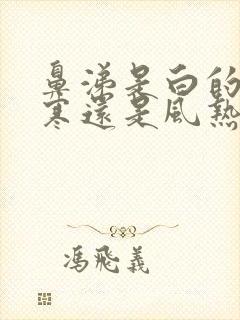 鼻涕是白的
寒還是風熱
馮飛義